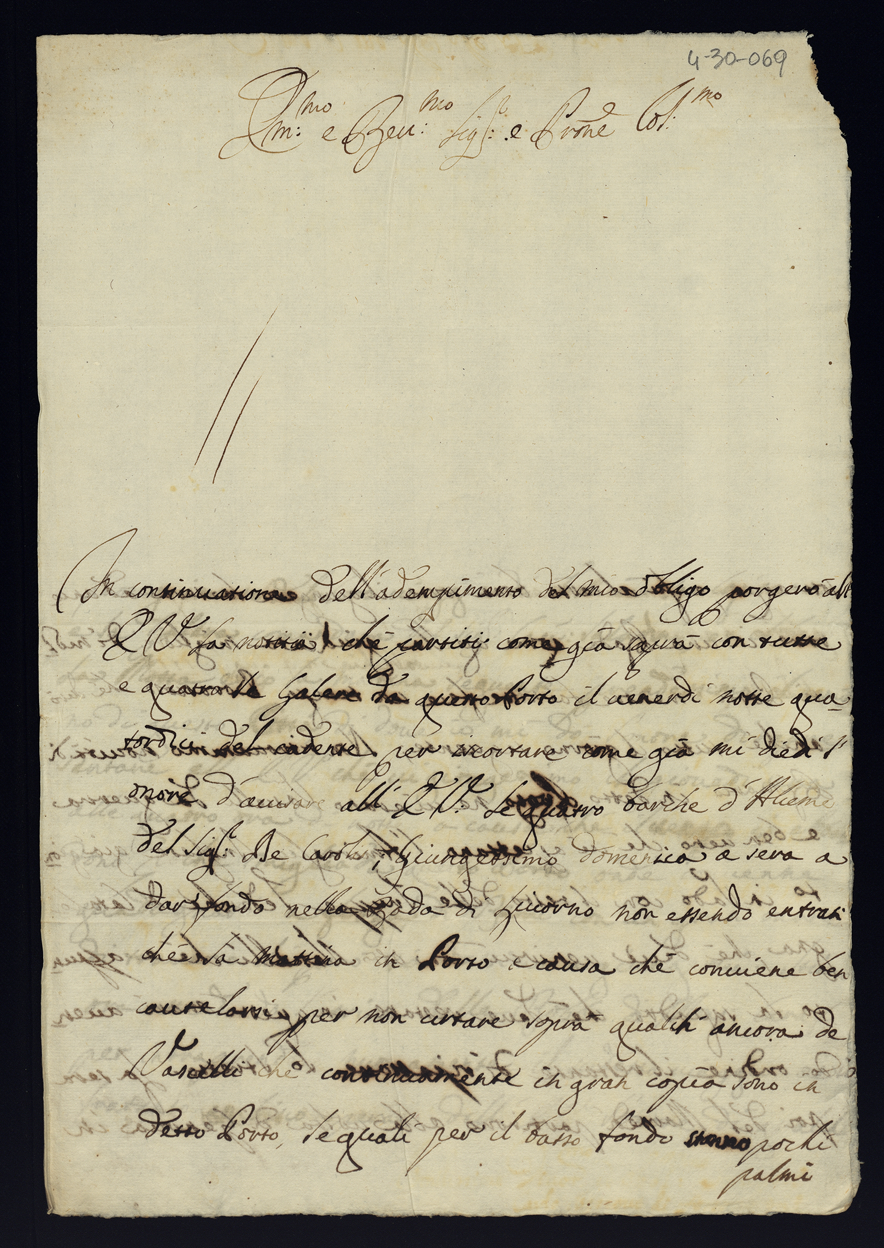 4-30-069
Em:mo e Reu:mo Sig:r e Prone Col:mo
In continuatione dell'adempimento del mio obligo porgerò all
E V. la notitia che partiti come già saprà con tutte
e quattro le Galere da questo Porto il uenerdi notte qua-
tordici del cadente per scortare come già mi diedi l'
onore d'auisare all' E V. le quattro barche d'Alume
del Sig:r De Caroli, Giungessimo domenica a sera a
dar fondo nella Rada di Liuorno non essendo entrati
che la mattina in Porto a causa che conuiene ben
cautelarsi per non urtare sopra qualch' ancora de
Vascelli che continuamente in gran copia sono in
detto Porto, le quali per il basso fondo stanno pochi
palmi